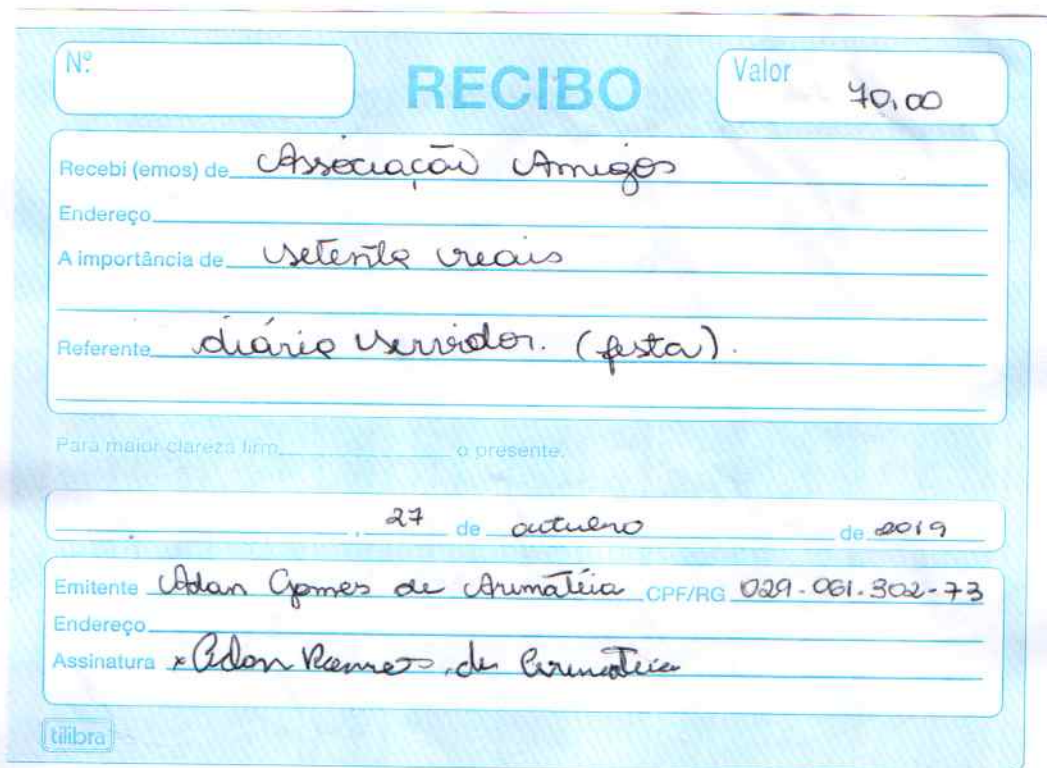 Nº
RECIBO
Valor 70,00
Recebi (emos) de Associação Amigos
Endereço
A importância de setenta reais
Referente diária servidor. (festa).
Para maior clareza firm o presente.
, 27 de outubro de 2019
Emitente Adan Gomes de Arimatéia CPF/RG 029.061.302-73
Endereço
Assinatura x Adan Ramos de Arimateia
tilibra